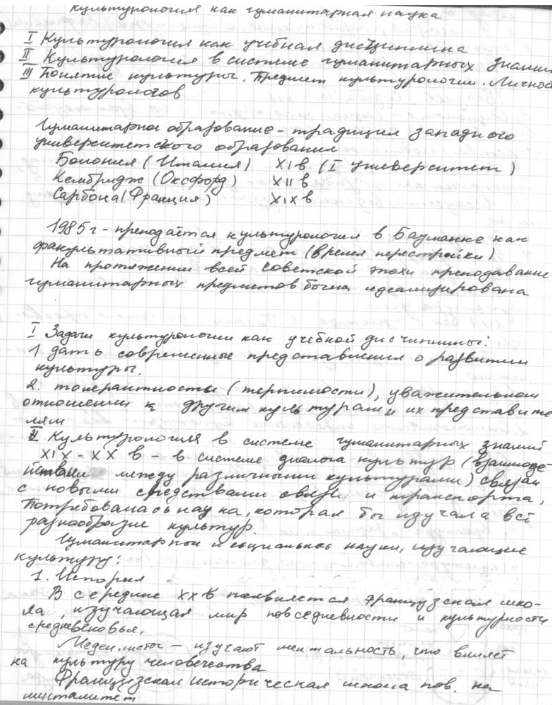 культурология как гуманитарная наука
I Культурология как учебная дисциплина
II Культурология в системе гуманитарных знаний
III Понятие культуры. Предмет культурологии. Личнос
культурологов
Гуманитарное образование - традиция западного
университетского образования
Болония (Италия) XI в (I университет)
Кембридж (Оксфорд) XII в
Сарбона (Франция) XIX в
1985г - преподаётся культурология в Бауманке как
факультативный предмет (время перестройки)
На протяжении всей советской эпохи преподавание
гуманитарных предметов было идеализирована
I Задачи культурологии как учебной дисциплины:
1. дать современные представления о развитии
культуры.
2. толерантность (терпимости), уважительном
отношении к другим культурам и их представите
лям
II Культурология в системе гуманитарных знаний
XIX - XX в - в системе диалога культур (взаимоде-
йствии между различными культурами) связан
с новыми средствами связи и транспорта,
Потребовалась наука, которая бы изучала всё
разнообразие культур.
Гуманитарной и социальной науки, изучающие
культуру:
1. История
В середине XX в появляется французская шко-
ла, изучающая мир повседневности и культурности
средневековья.
изучают ментальность, что влияет
на культуру человечества
Французская историческая школа пов. на
менталитет